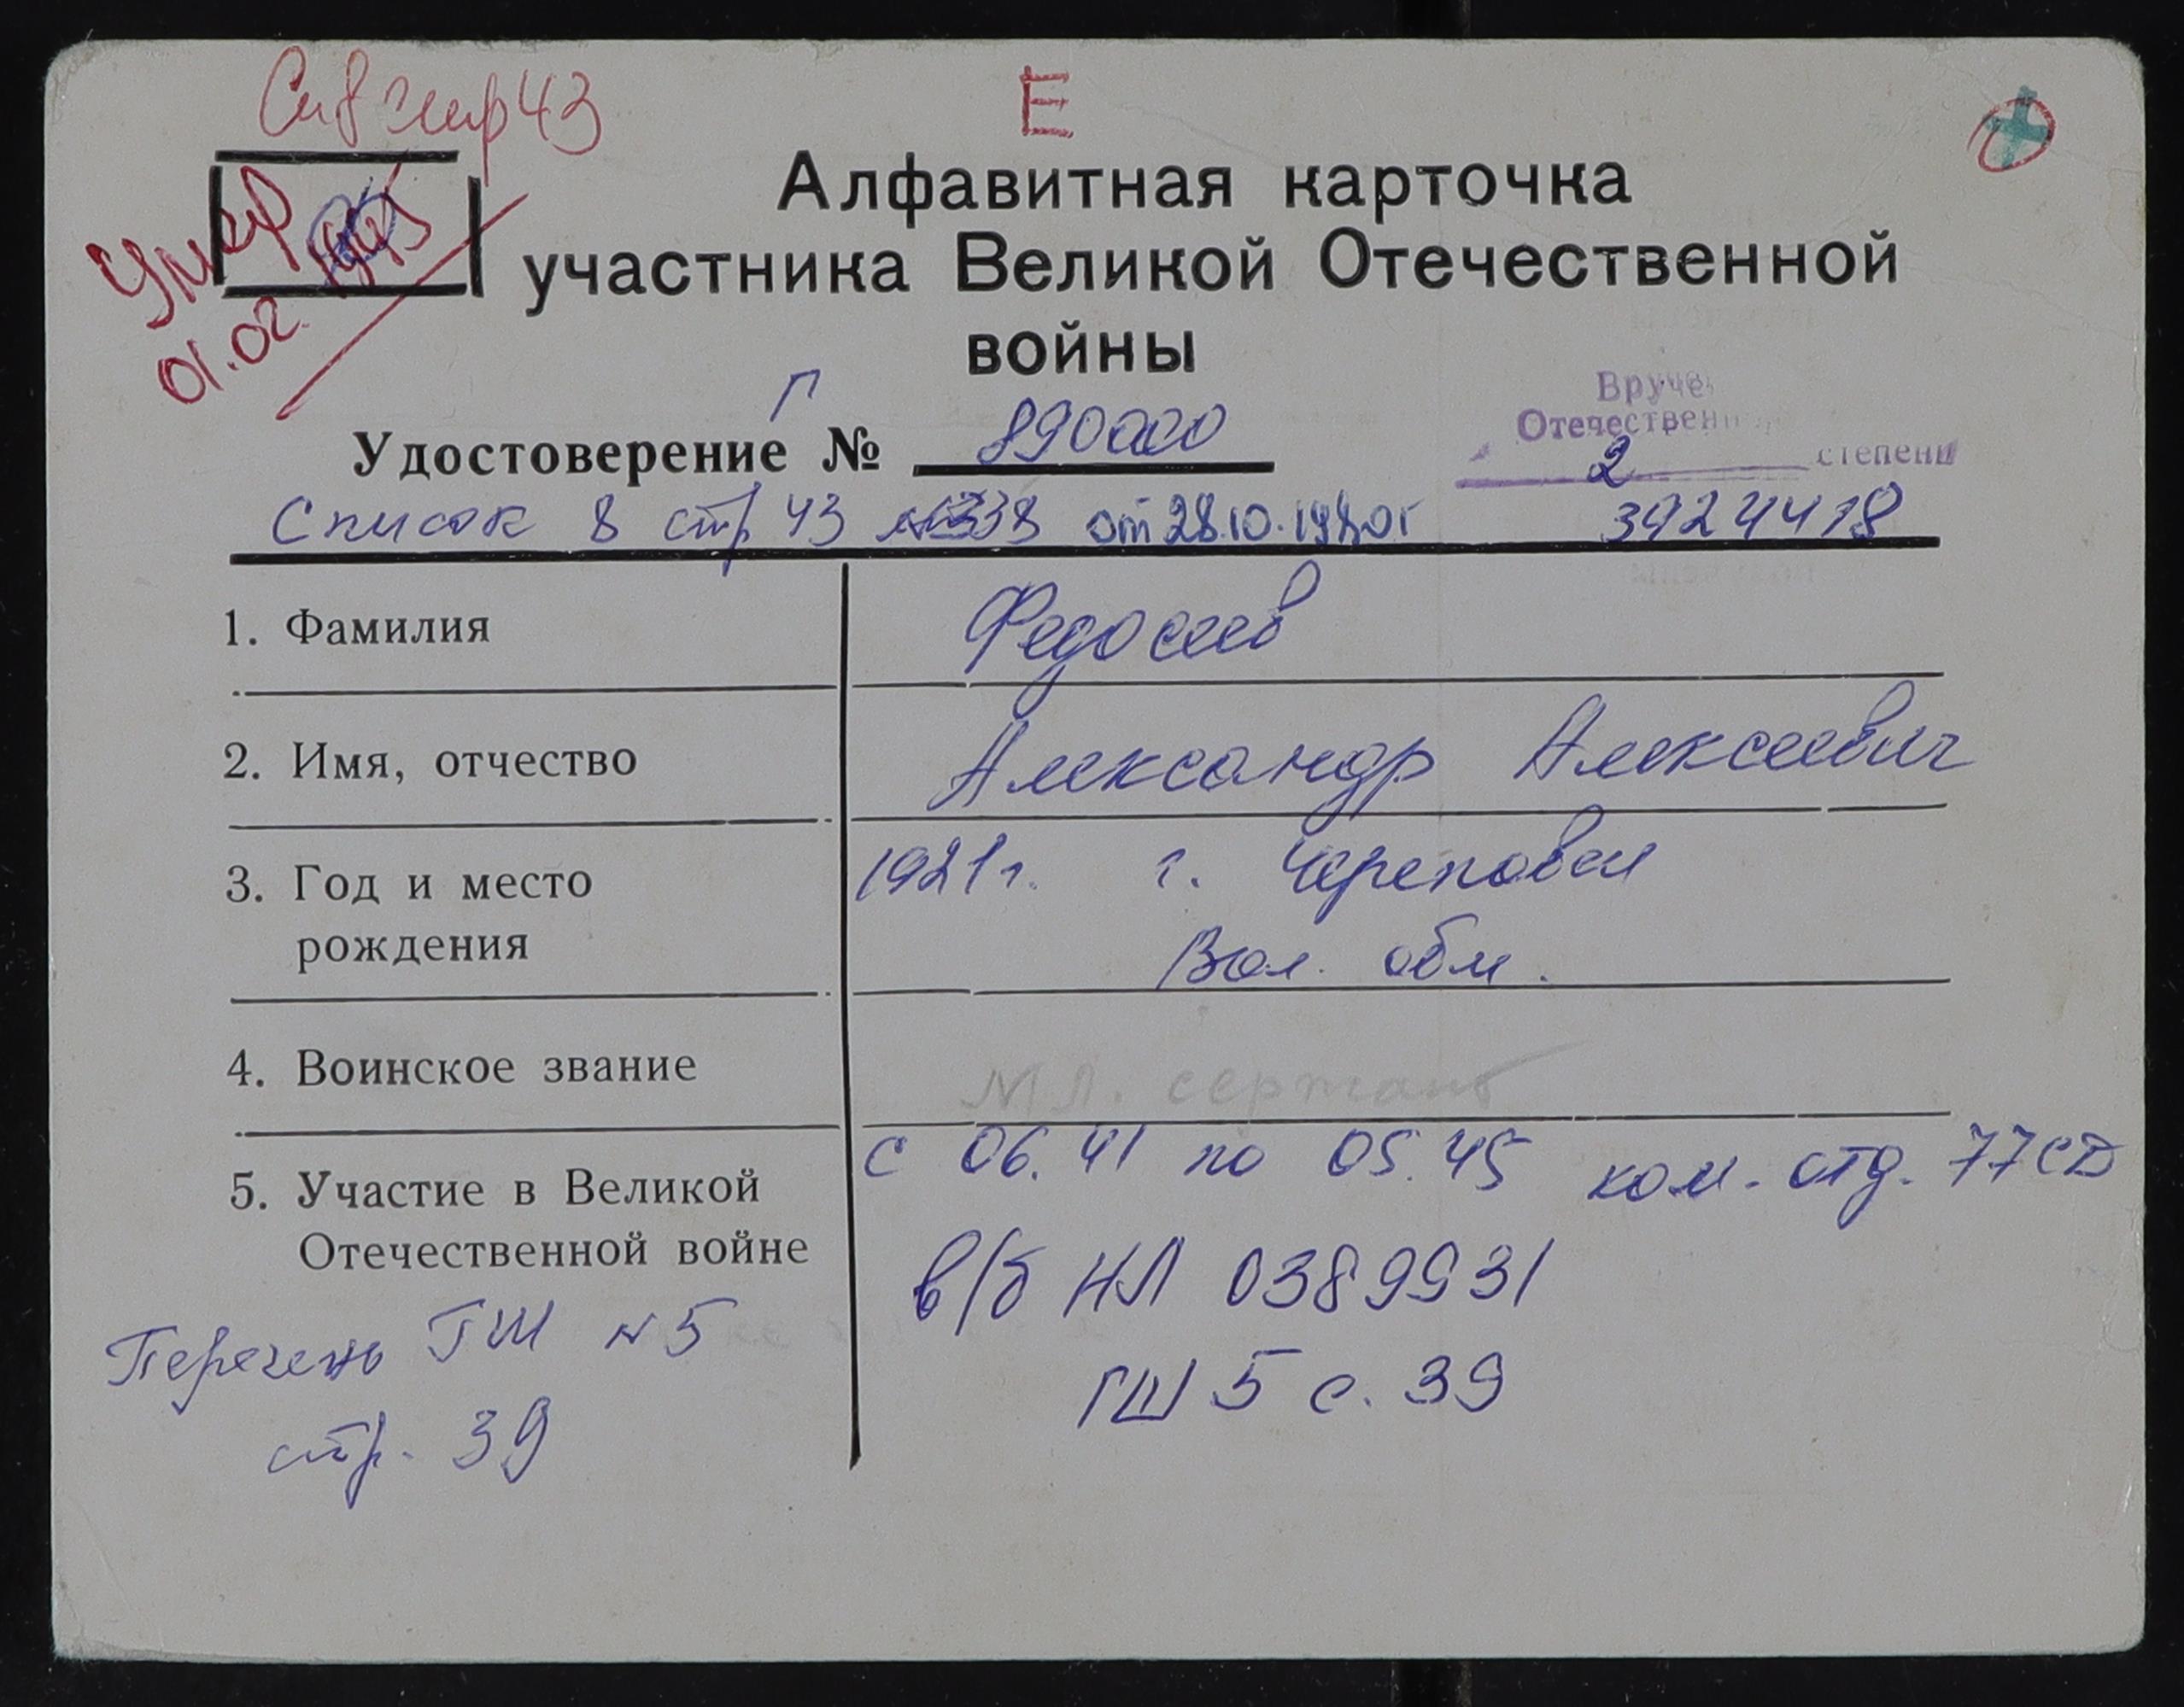 стр 43
Е
Умер
01.02.
Алфавитная карточка
участника Великой Отечественной
войны
Г
Удостоверение № 890000
Вруче
Отечествен
2 степени
Список 8 стр 43 от 28.10.1980г
3924418
1. Фамилия Федосеев
2. Имя, отчество Александр Алексеевич
3. Год и место 1921г. г. Череповец
рождения Вол. обл.
4. Воинское звание Мл. сержант
5. Участие в Великой с 06.41 по 05.45 ком. отд. 77 СД
Отечественной войне в/б НЛ 0389931
Перечень ГШ № 5 ГШ 5 с. 39
стр. 39